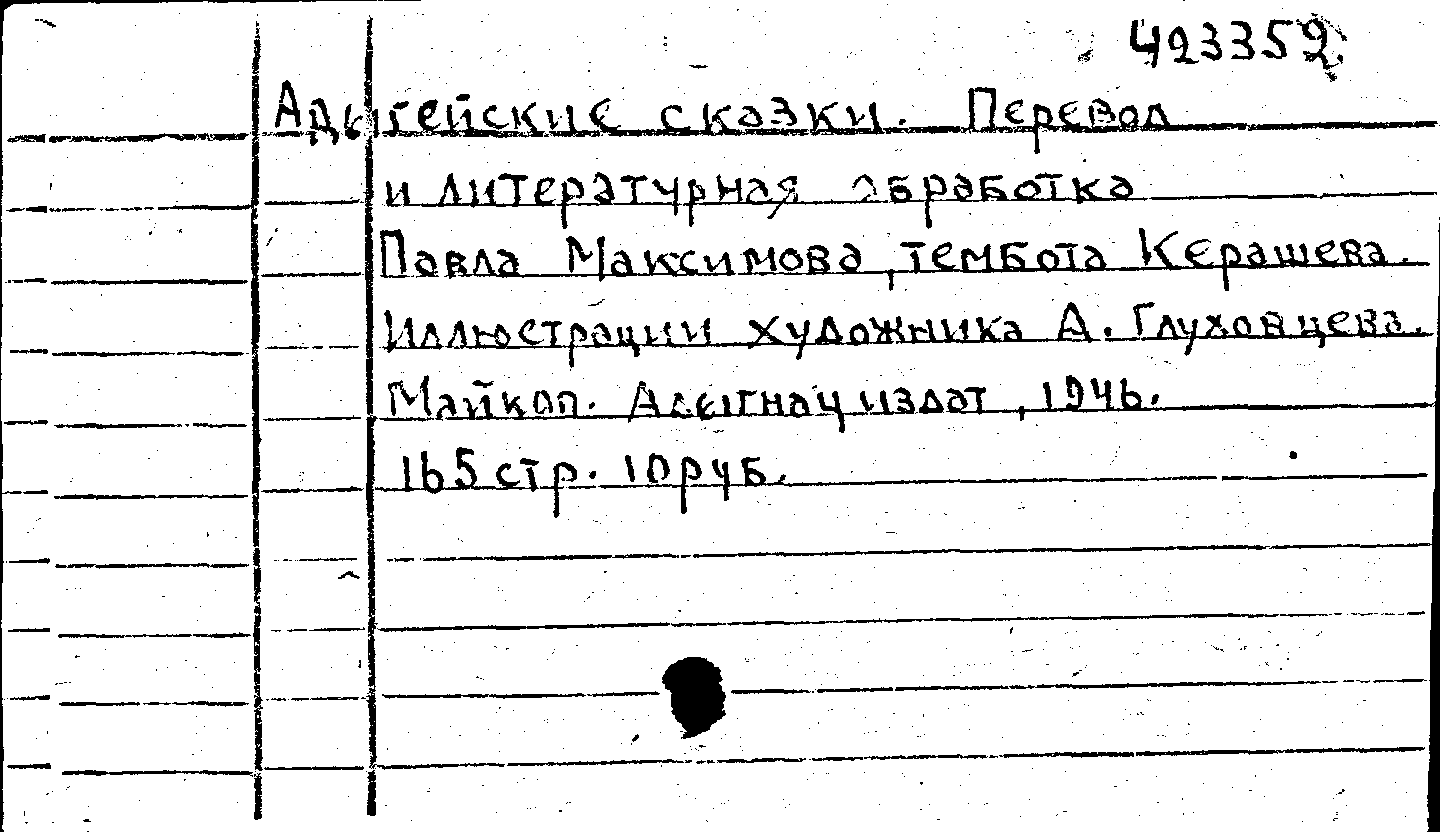 423352
Адыгейские сказки. Перевод
и литературная обработка
Павла Максимова, тембота Керашева.
Иллюстрации художника А. Глуховцева.
Майкоп. Адыгнациздат, 1946.
165 стр. 10 руб.